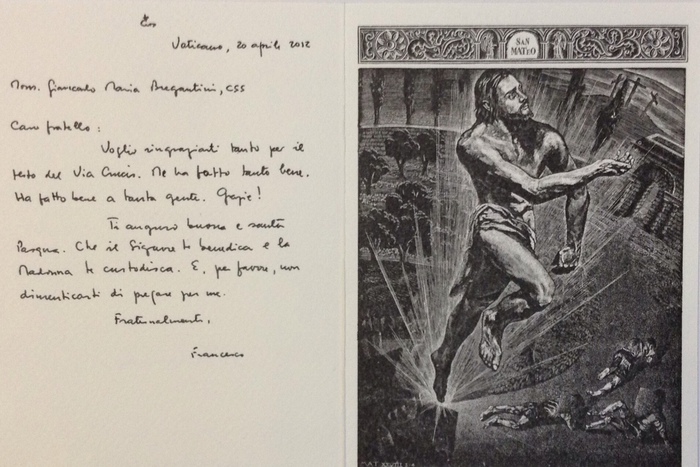 Vaticano, 20 aprile 2014
Mons. Giancarlo Maria Bregantini, CSS
Caro fratello:
Voglio ringraziarti tanto per il
testo del Via Crucis. Me ha fatto tanto bene.
Ha fatto bene a tanta gente. Grazie!
Ti auguro buona e santa
Pasqua. Che il Signore te benedica e la
Madonna te custodisca. E, per favore, non
dimenticarti di pregare per me.
Fraternalmente,
Francesco
SAN
MATEO